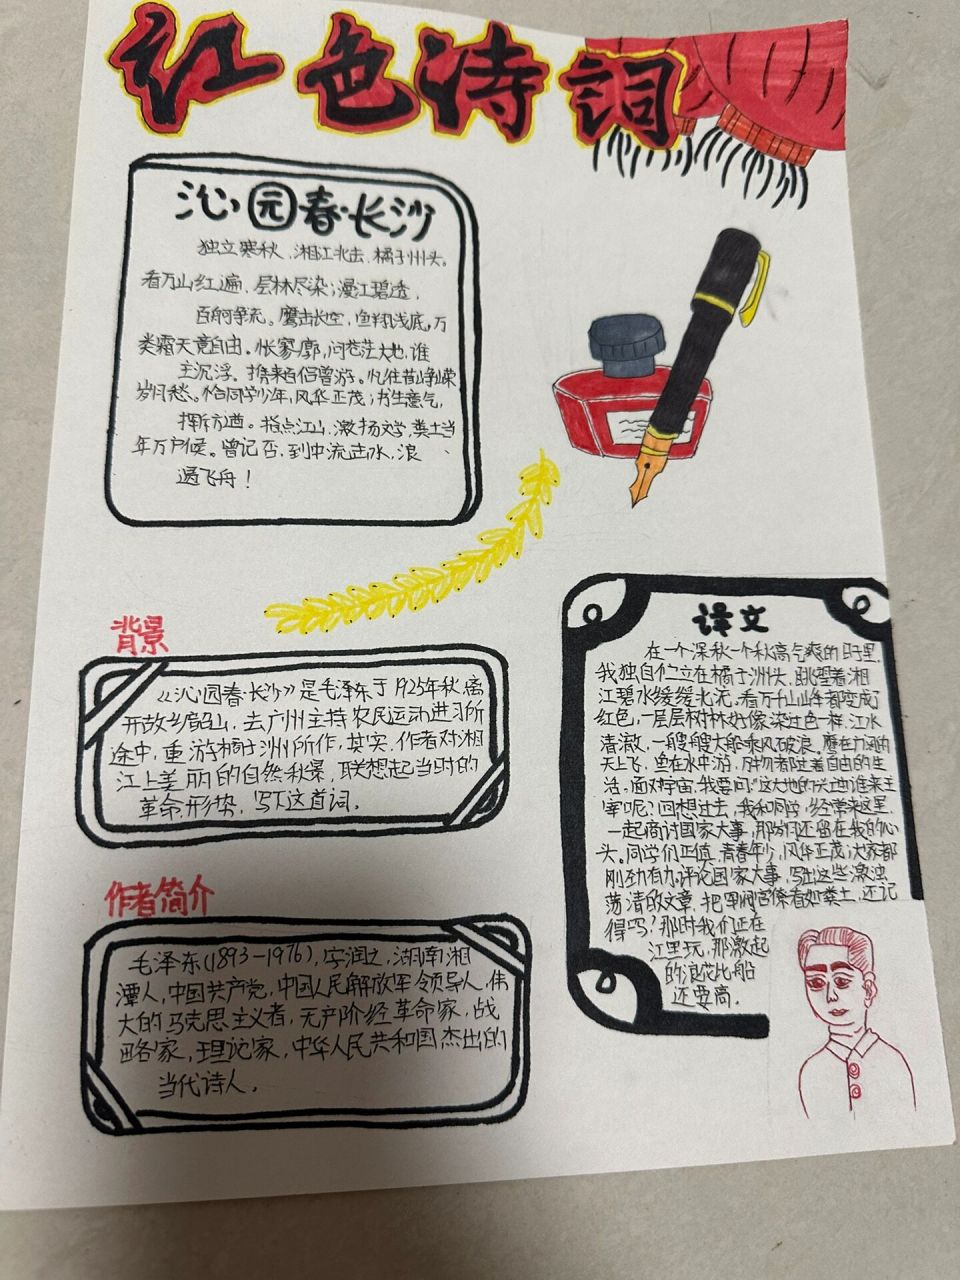 红色诗词
沁园春·长沙
独立寒秋,湘江北去,橘子州头。
看万山红遍,层林尽染;漫江碧透,
百舸争流。鹰击长空,鱼翔浅底,万
类霜天竟自由。怅寥廓,问苍茫大地,谁
主沉浮。携来百侣曾游。忆往昔峥嵘
岁月愁。恰同学少年,风华正茂;书生意气,
挥斥方遒。指点江山,激扬文字,粪土当
年万户候。曾记否,到中流击水,浪
遏飞舟!
背景
《沁园春·长沙》是毛泽东于1925年秋离
开故乡韶山,去广州主持农民运动进习所
途中,重游橘子洲所作,其实,作者对湘
江上美丽的自然秋景,联想起当时的
革命形势,写下这首词。
作者简介
毛泽东(1893-1976),字润之,湖南湘
潭人,中国共产党,中国人民解放军领导人,伟
大的马克思主义者,无产阶经革命家,战
略家,理论家,中华人民共和国杰出的
当代诗人。
译文
在一个深秋一个秋高气爽的日子里,
我独自伫立在橘子洲头,眺望着湘
江碧水缓缓北流,看万千山峰都变成了
红色,一层层树林好像染过色一样,江水
清澈,一艘艘大船乘风破浪,鹰在广阔的
天上飞,鱼在水中游,万物都过着自由的生
活,面对宇宙,我要问:这大地的天地谁来主
宰呢?回想过去,我和同学,经常来这里
一起商讨国家大事,那份何还留在我的心
头。同学们正值青春年少,风华正茂;大家都
刚劲有力评论国家大事,写出这些激浊
荡清的文章,把军阀官僚看如粪土,还记
得吗?那时我们正在
江里玩,那激起
的浪花比船
还要高.